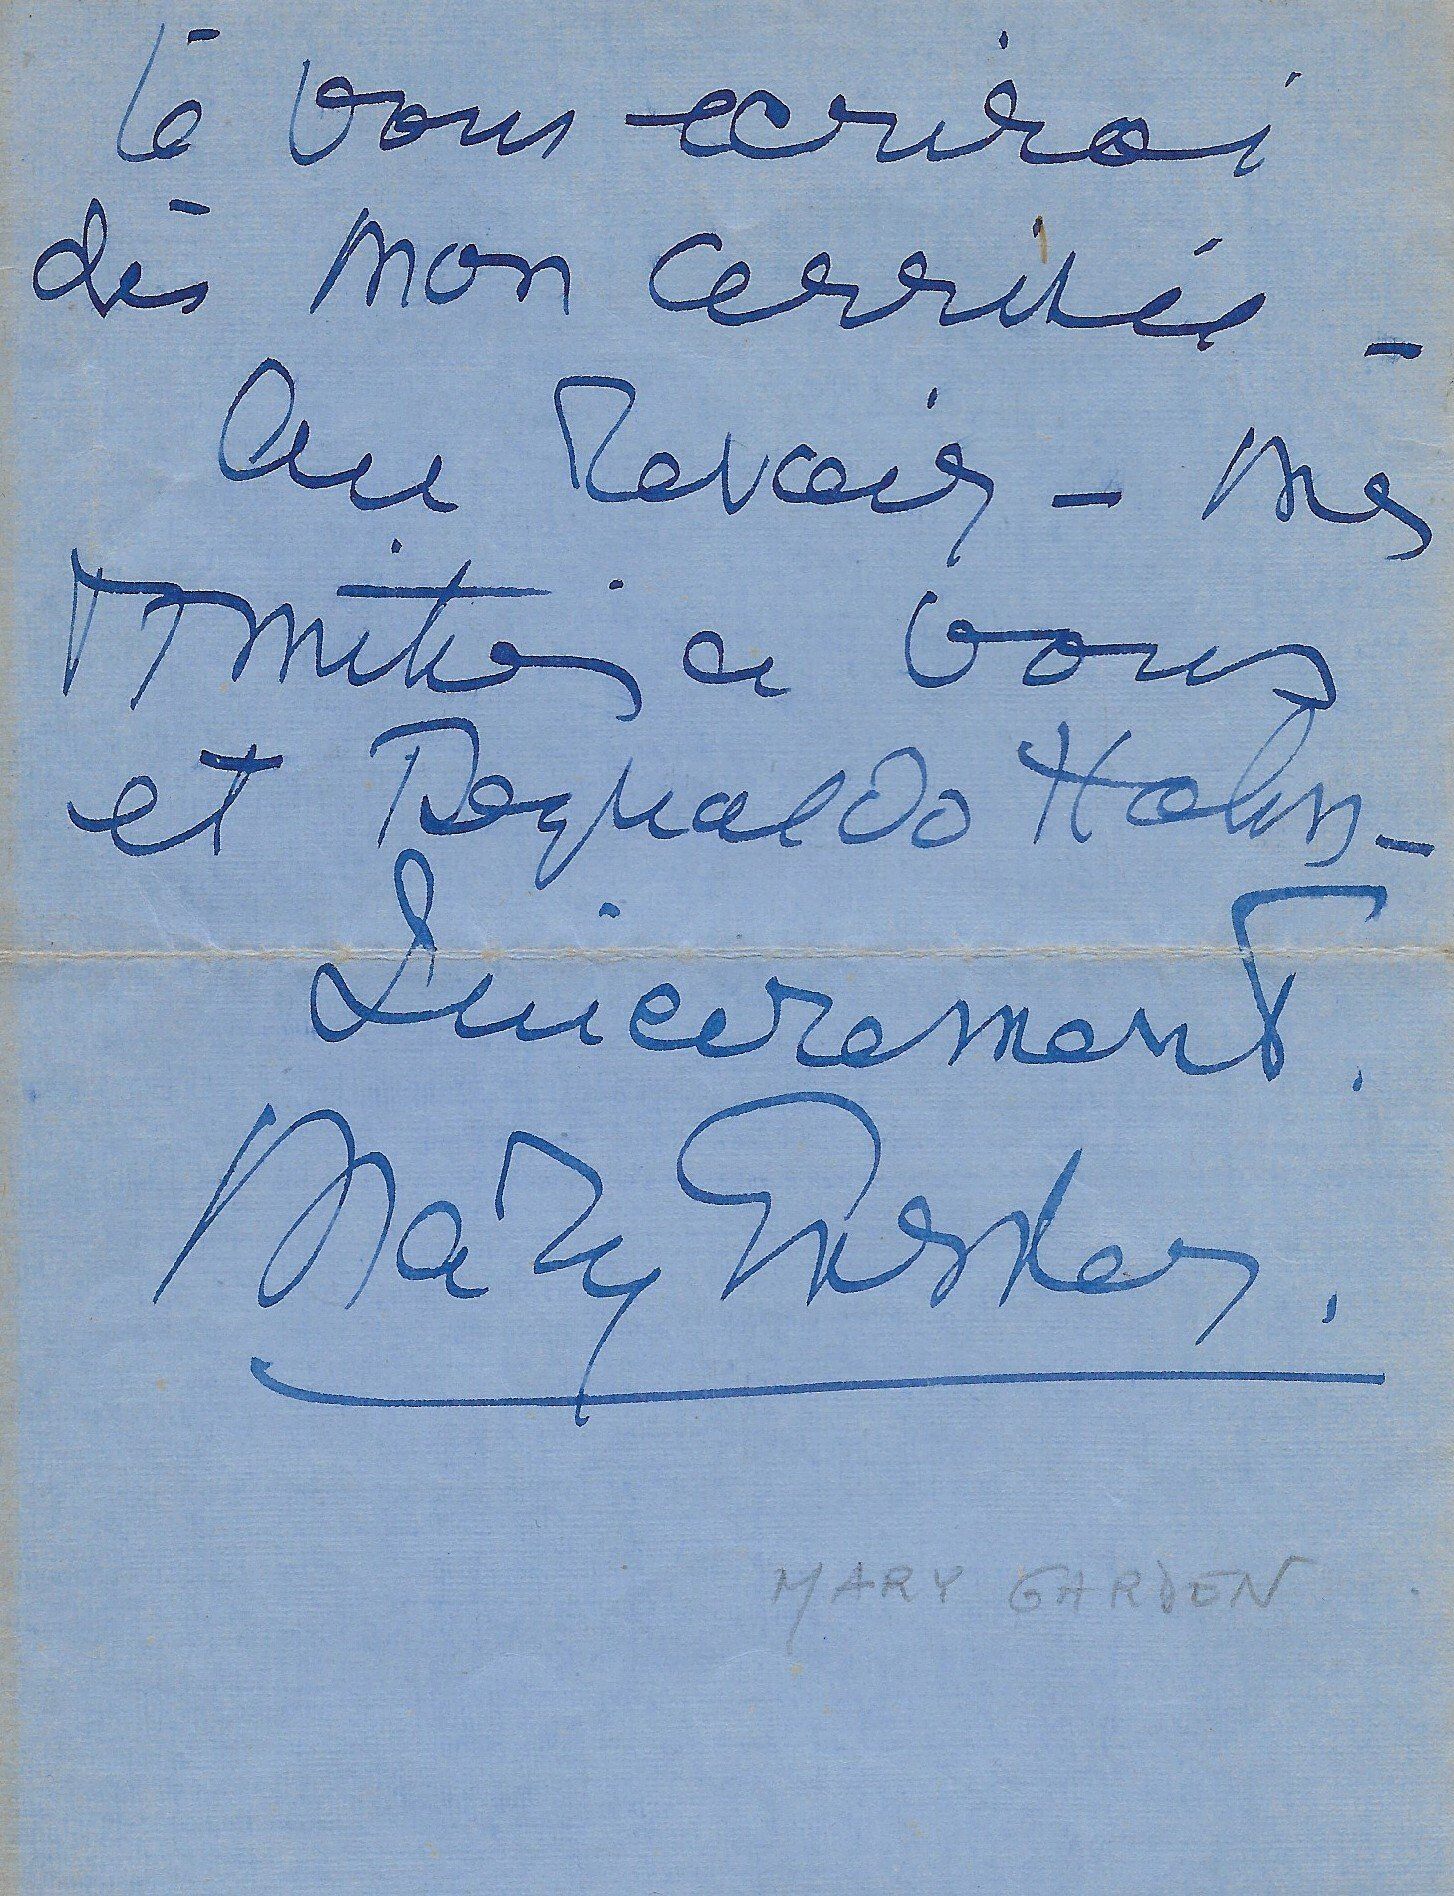 Je vous ecrirai
dès mon arrivée -
Au Revoir - Mes
Amitiés a vous
et Reynaldo Hahn -
Sincerement.
Mary Garden.
MARY GARDEN